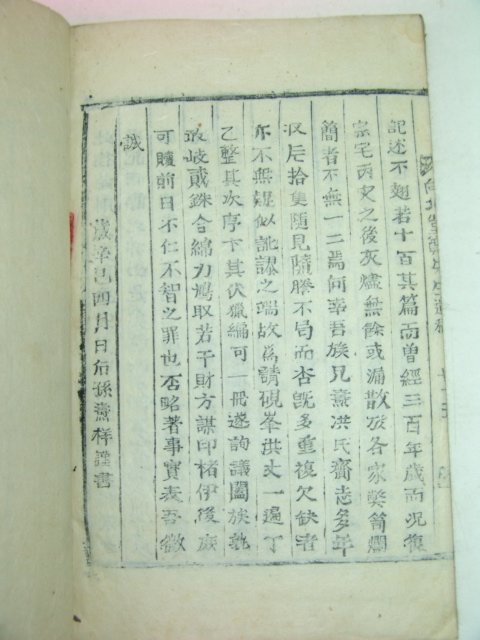 記述不翅若十百其篇而曾經三百年歲而况復
宗宅丙灾之後灰燼無餘或漏散於各家弊箱爛
簡者不無一二焉何幸吾族兄燾洪氏齋志多年
收后拾集隨見隨謄不局而杏旣多重複欠缺者
亦不無疑似訛謬之端故爲請硯峯洪丈一遍丁
乙整其次序下其伏獵編可一冊遂詢議闔族乾
峻岐貳銖合綿力鳩取若干財方謀印楮伊後庶
可贖前日不仁不智之罪也否略著事實表吾微
誠
歲辛巳四月日后孫燾祥謹書